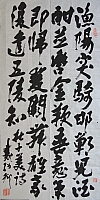 漁陽突騎邯鄲兒酒
酣並轡金鞭垂意氣
即歸雙闕舞雄豪
復遣五陵知